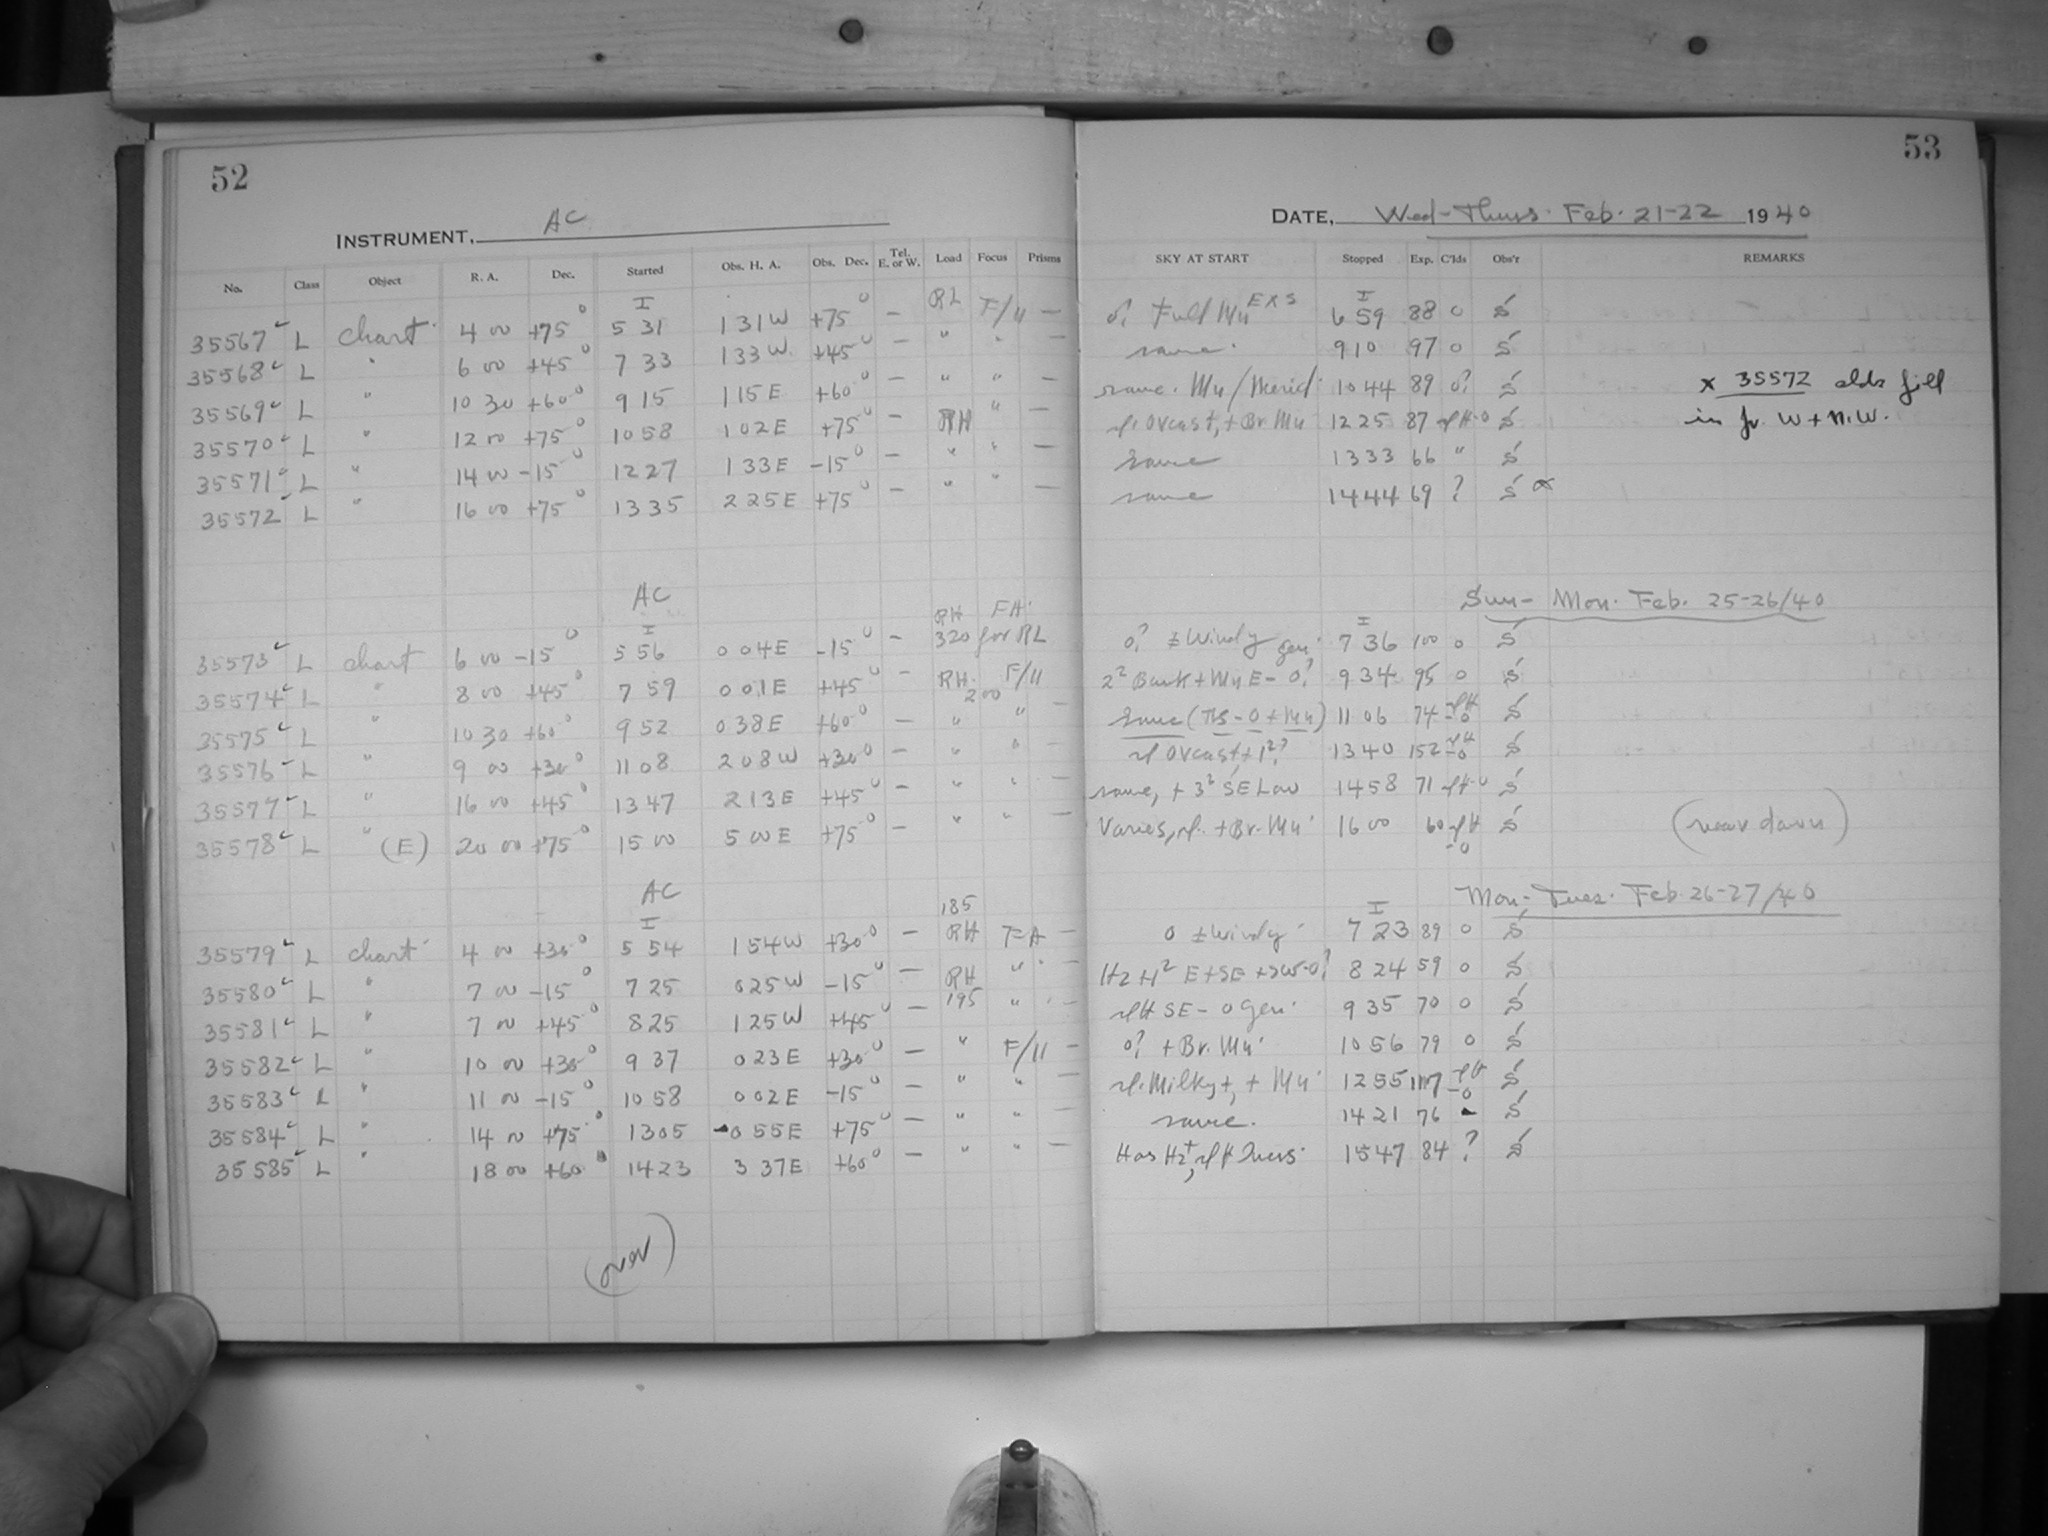 52
INSTRUMENT, AC
No. Class Object R. A. Dec. Started Obs. H. A. Obs. Dec. Tel. E. or W. Load Focus Prisms
35567 L chart 4 00 +75° I 5 31 1 31 W +75° — RL F/11 —
35568 L " 6 00 +45° 7 33 1 33 W +45° — " " —
35569 L " 10 30 +60° 9 15 1 15 E +60° — " " —
35570 L " 12 00 +75° 10 58 1 02 E +75° — RH "
35571 L " 14 00 -15° 12 27 1 33 E -15° — " " —
35572 L " 16 00 +75° 13 35 2 25 E +75° — " " —
AC
35573 L chart 6 00 -15° I 5 56 0 04 E -15° — RH 320 FA for RL
35574 L " 8 00 +45° 7 59 0 01 E +45° — RH 200 F/11
35575 L " 10 30 +60° 9 52 0 38 E +60° — " " —
35576 L " 9 00 +30° 11 08 2 08 W +30° — " " —
35577 L " 16 00 +45° 13 47 2 13 E +45° — " " —
35578 L " (E) 20 00 +75° 15 00 5 00 E +75° — " " —
AC
35579 L chart 4 00 +30° I 5 54 1 54 W +30° — 185 RH FA —
35580 L " 7 00 -15° 7 25 0 25 W -15° — RH 195 " —
35581 L " 7 00 +45° 8 25 1 25 W +45° — " —
35582 L " 10 00 +30° 9 37 0 23 E +30° — " F/11 —
35583 L " 11 00 -15° 10 58 0 02 E -15° — " " —
35584 L " 14 00 +75° 13 05 0 55 E +75° — " " —
35585 L " 18 00 +60° 14 23 3 37 E +60° — " " —
(over)
53
DATE, Wed-Thurs. Feb. 21-22 1940
SKY AT START Stopped Exp. C'lds Obs'r REMARKS
0? Full Mn I 6 59 88 0 S
same 9 10 97 0 S
same. Mn/Merid. 10 44 89 0? S x 35572 clds fill
Ovcast, + Br. Mn 12 25 87 S in fr. W + N.W.
same 13 33 66 " S
same 14 44 69 ? S x
Sun-Mon. Feb. 25-26/40
0? ± Windy gen. I 7 36 100 0 S
2² Bank + Mn E-0? 9 34 95 0 S
same 11 06 74 S
Ovcast, + 1²? 13 40 152 S
same, + 3² SE Low 14 58 71 S
Varies, + Br. Mn 16 00 60 S (near dawn)
Mon-Tues. Feb. 26-27/40
0 ± Windy I 7 23 89 0 S
E+SE+SW-0? 8 24 59 0 S
SE-0 Gen. 9 35 70 0 S
0? + Br. Mn. 10 56 79 0 S
Milky+, + Mn. 12 55 117 S
same. 14 21 76 - S
Has 15 47 84 ? S